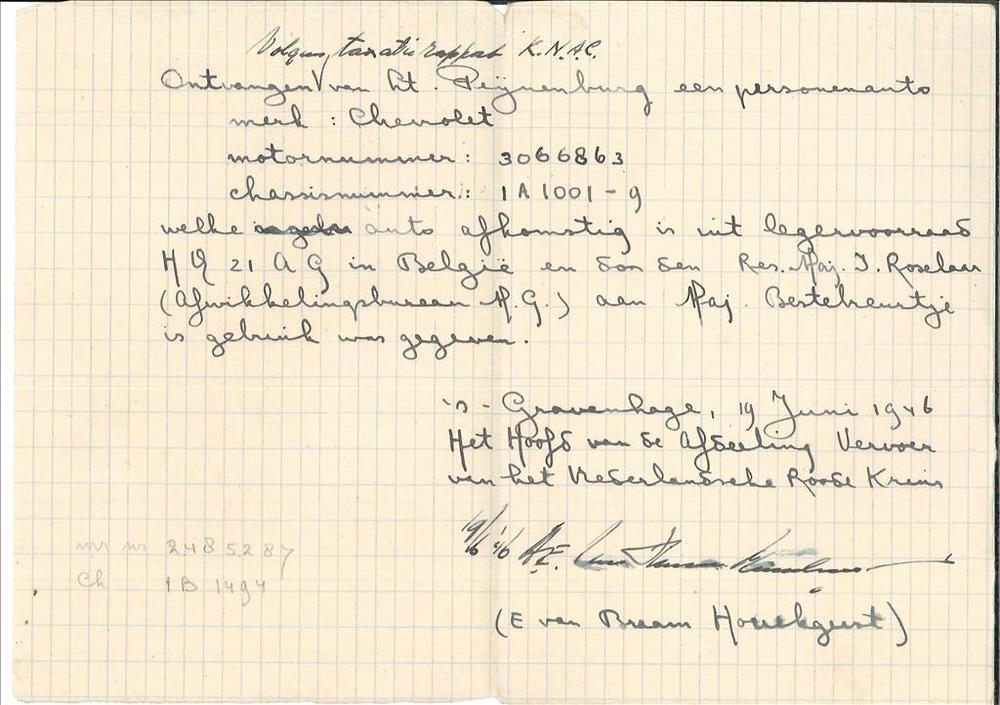 Volgens taxatie rapport K.N.A.C.
Ontvangen van Lt. Peijnenburg een personenauto
merk : Chevrolet
motornummer : 3066863
chassisnummer : 1A1001-9
welke auto afkomstig is uit legervoorraad
H Q 21 A G in België en door den Res. Maj. J. Roselaar
(Afwikkelingsbureau M.G.) aan Maj. Bestebreurtje
is gebruik was gegeven.
's-Gravenhage, 19 Juni 1946
Het Hoofd van de Afdeeling Vervoer
van het Nederlandsche Roode Kruis
19/6 '46
(E van Braam Houckgeest)
mr nr 2485287
Ch 1B 1494